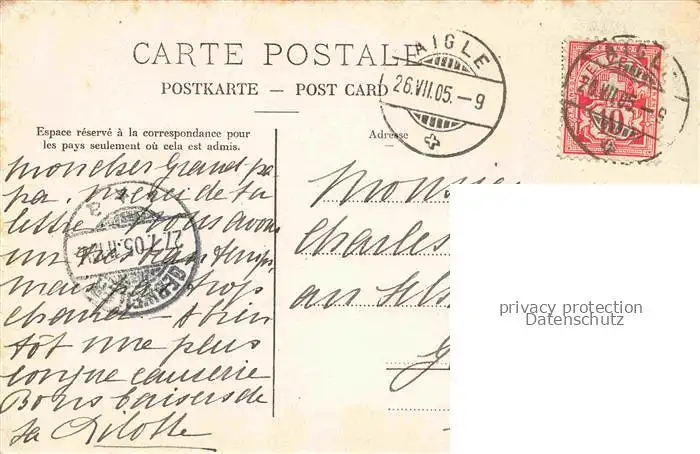 CARTE POSTALE
POSTKARTE — POST CARD
AIGLE
26.VII.05.—9
AIGLE
26.VII.05.—9
10
Espace réservé à la correspondance pour
les pays seulement où cela est admis.
Adresse
mon cher Grand pa
pa. merci de ta
lettre Nous avons
un temps
mais trop
chaud — A bien
tôt une plus
longue causerie
Bons baisers de
ta Lilotte
27.7.05
Monsieur
Charles
au
privacy protection
Datenschutz